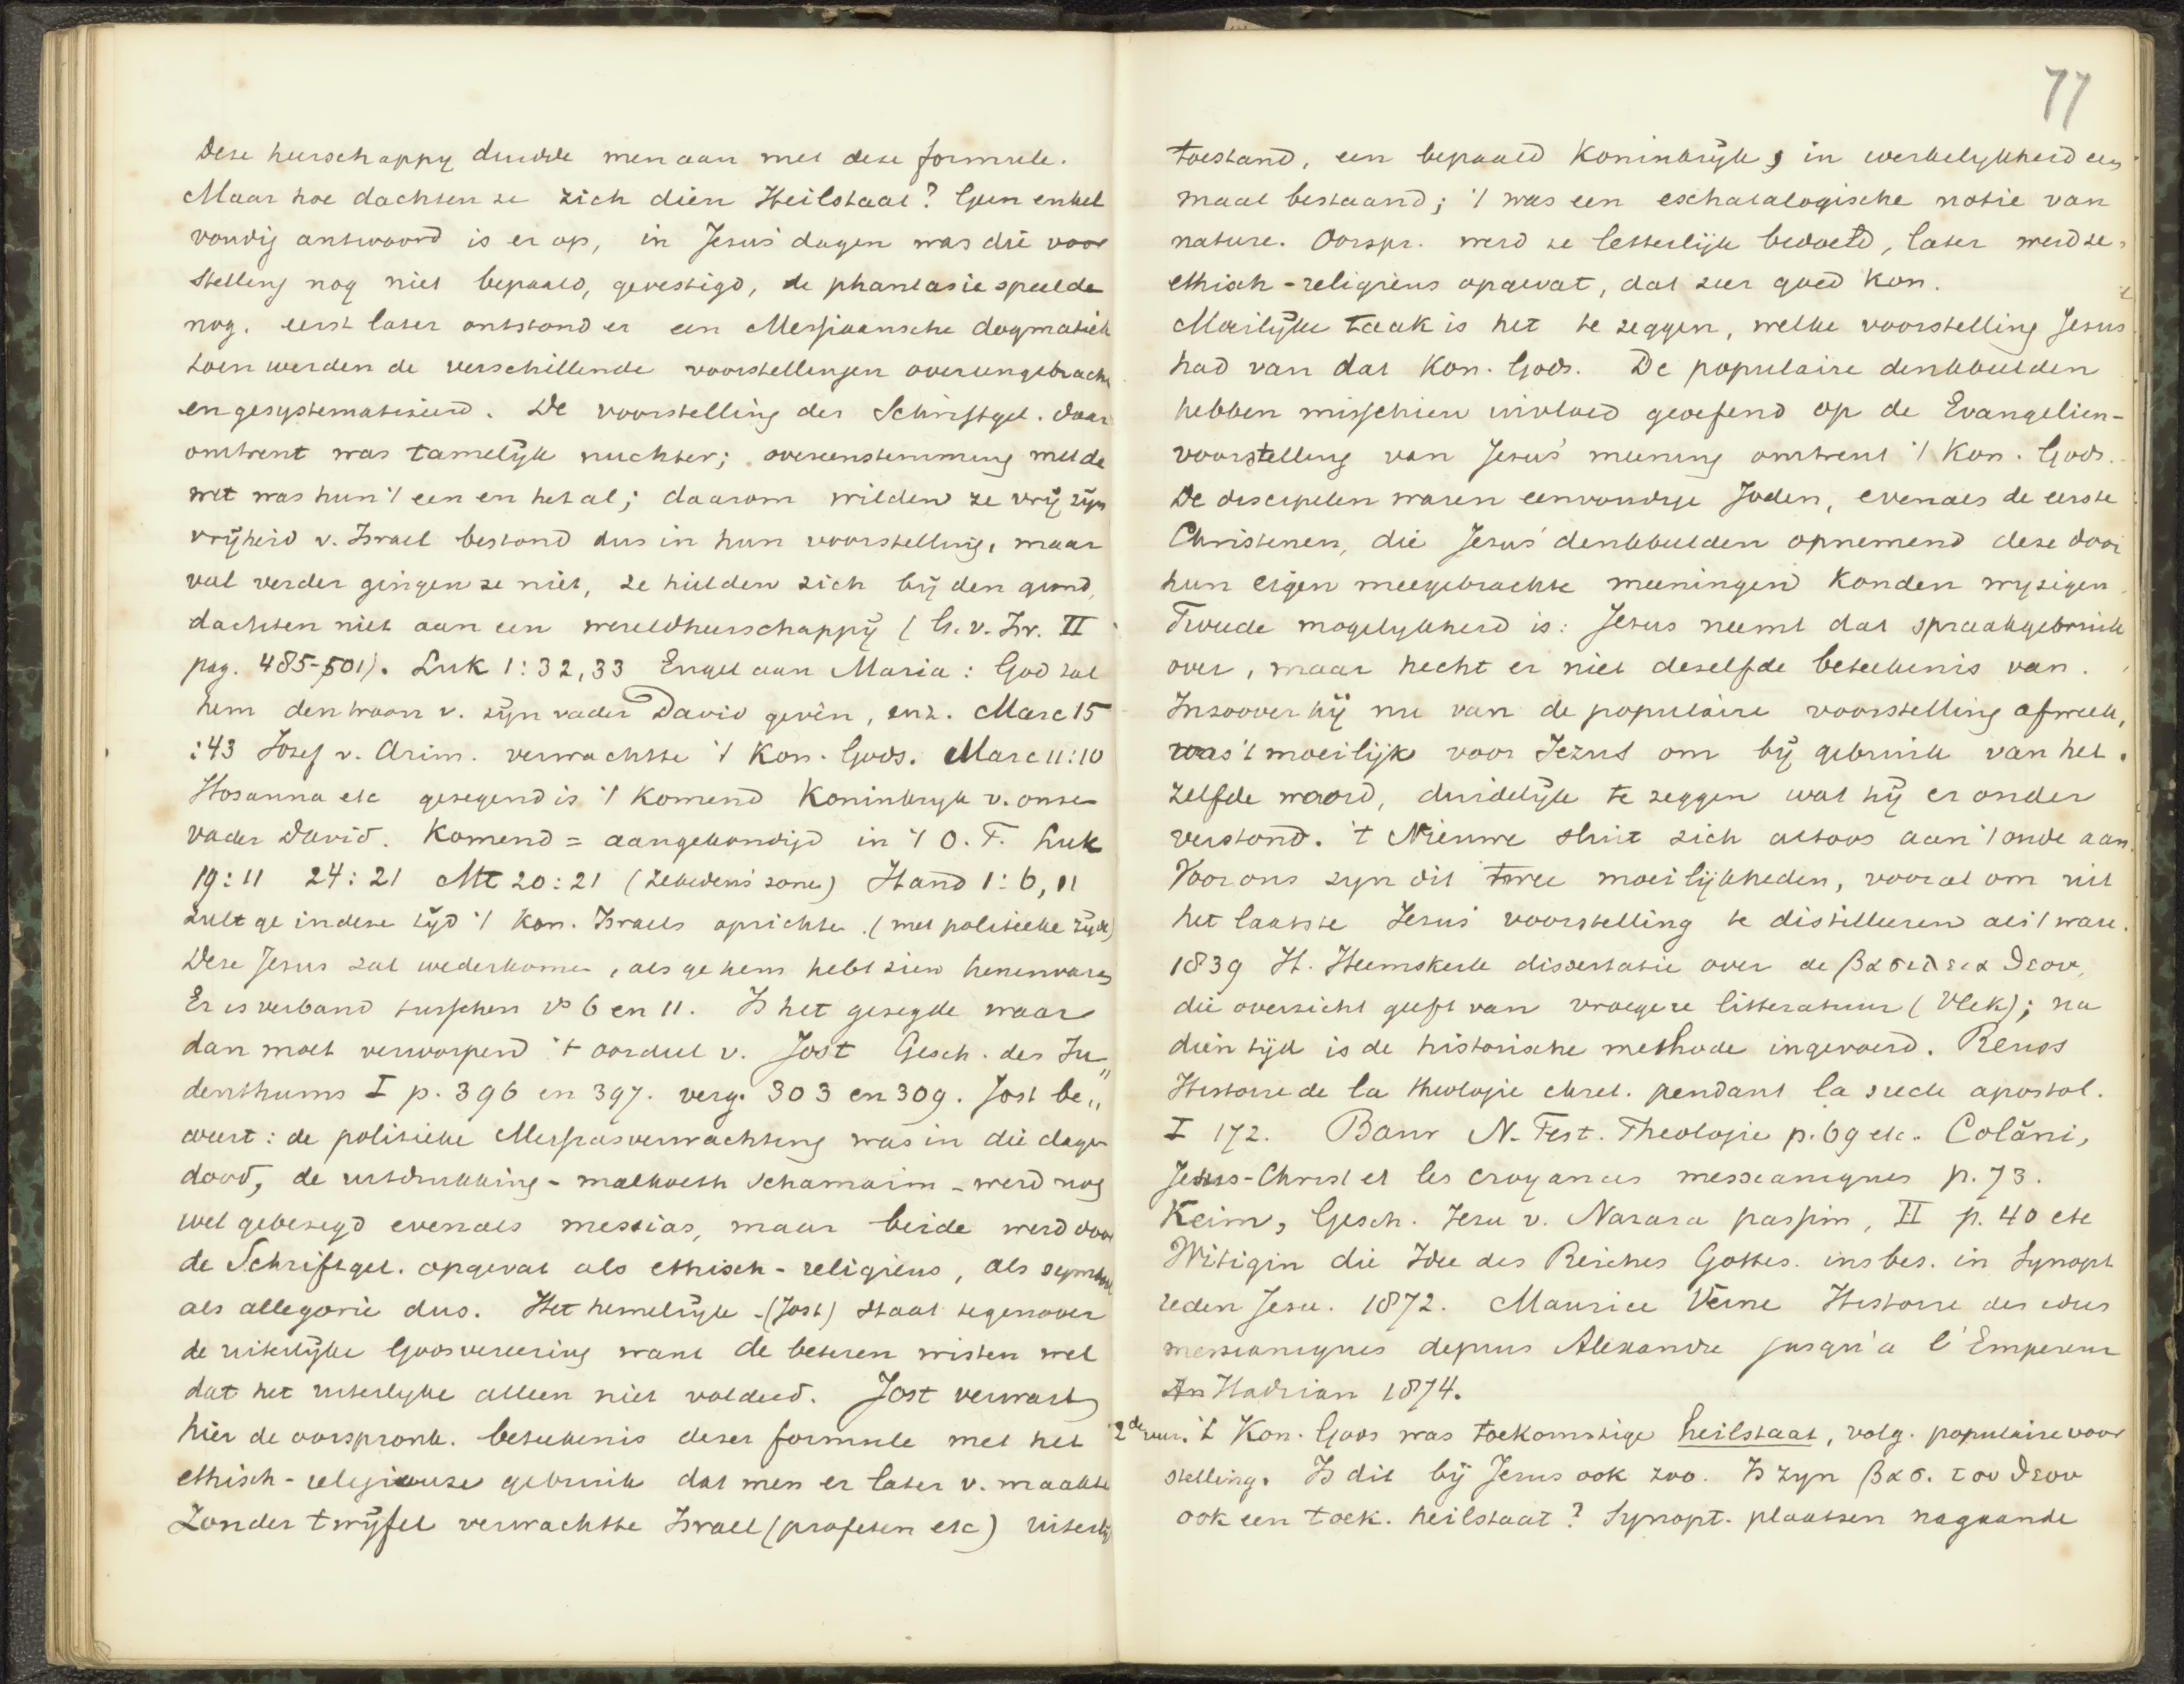 77
Deze heerschappy duidde men aan met deze formule.
Maar hoe dachten ze zich dien Heilstaat? Geen enkel
voudig antwoord is er op, in Jezus' dagen was die voor
stelling nog niet bepaald, gevestigd, de phantasie speelde
nog. eerst later ontstond er een Messiaansche dogmatiek
toen werden de verschillende voorstellingen overeengebracht
en gesystematiseerd. De voorstelling der Schriftgel. daar
omtrent was tamelijk nuchter; overeenstemming met de
wet was hun 't een en het al; daarom wilden ze vrij zijn
vrijheid v. Israel bestond dus in hun voorstelling, maar
veel verder gingen ze niet, ze hielden zich bij den grond,
dachten niet aan een wereldheerschappij (G. v. Isr. II
pag. 485-501). Luk 1:32,33 Engel aan Maria: God zal
hem den troon v. zijn vader David geven, enz. Marc 15
:43 Josef v. Arim. verwachtte 't Kon. Gods. Marc 11:10
Hosanna etc gezegend is 't komend Koninkryk v. onze
vader David. Komend = aangekondigd in 't O. T. Luk
19:11 24:21 Mt 20:21 (Zebedeus' zone) Hand 1:6, 11
zult ge in deze tijd 't Kon. Israels oprichte. (met politieke zijde)
Deze Jezus zal wederkomen, als ge hem hebt zien henenvaren
Er is verband tusschen vs 6 en 11. Is het gezegde waar
dan moet verworpen 't oordeel v. Jost Gesch. des Ju„
denthums I p. 396 en 397. verg. 303 en 309. Jost be„
weert: de politieke Messiasverwachting was in die dagen
dood, de uitdrukking - malkoeth schamaim - werd nog
wel gebezigd evenals messias, maar beide werd door
de Schriftgel. opgevat als ethisch-religieus, als symbool
als allegorie dus. Het hemelrijk - (Jost) staat tegenover
de uiterlijke Godsvereering want de beteren wisten wel
dat het uiterlyke alleen niet voldeed. Jost verwart
hier de oorspronk. beteekenis dezer formule met het
ethisch-religieuze gebruik dat men er later v. maakte
Zonder twijfel verwachtte Israel (profeten etc) uiterlijk
toestand, een bepaald Koninkrijk, in werkelykheid een
maal bestaand; 't was een eschatalogische notie van
nature. Oorspr. werd ze letterlijk bedoeld, later werd ze
ethisch-religieus opgevat, dat zeer goed kon.
Moeilijke taak is het te zeggen, welke voorstelling Jezus
had van dat Kon. Gods. De populaire denkbeelden
hebben misschien invloed geoefend op de Evangelien-
voorstelling van Jezus' meening omtrent 't Kon. Gods.
De discipelen waren eenvoudige Joden, evenals de eerste
Christenen, die Jezus' denkbeelden opnemend deze door
hun eigen meegebrachte meeningen konden wyzigen.
Tweede mogelykheid is: Jezus neemt dat spraakgebruik
over, maar hecht er niet dezelfde beteekenis van.
Inzoover hij nu van de populaire voorstelling afweek,
was 't moeilijk voor Jezus om bij gebruik van het
zelfde woord, duidelijk te zeggen wat hij er onder
verstond. 't Nieuwe sluit zich altoos aan 't oude aan.
Voor ons zyn dit twee moeilijkheden, vooral om uit
het laatste Jezus' voorstelling te distilleeren als 't ware.
1839 H. Heemskerk dissertatie over de βασιλεια θεου,
die overzicht geeft van vroegere litteratuur (Vlek); na
dien tijd is de historische methode ingevoerd. Reuss
Histoire de la theologie chret. pendant la siecle apostol.
I 172. Baur N. Test. Theologie p. 69 etc. Colani,
Jesus-Christ et les croyances messianiques p. 73.
Keim, Gesch. Jesu v. Nazara passim, II p. 40 etc
Witigin die Idee des Reiches Gottes. ins bes. in Synopt
reden Jesu. 1872. Maurice Verne Histoire des idees
messianiques depuis Alexandre jusqu'a l'Empereur
Hadrian 1874.
2de uur. 't Kon. Gods was toekomstige heilstaat, volg. populaire voor
stelling. Is dit bij Jezus ook zoo. Is zyn βασ. του θεου
ook een toek. heilstaat? Synopt. plaatsen nagaande